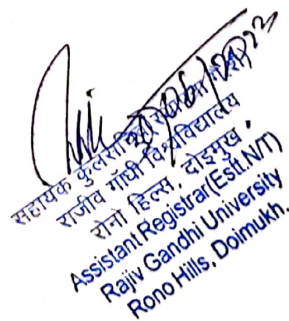 सहायक कुलसचिव
राजीव गांधी विश्वविद्यालय
रोनो हिल्स, दोइमुख,
Assistant Registrar(Estt.N/T)
Rajiv Gandhi University
Rono Hills, Doimukh.